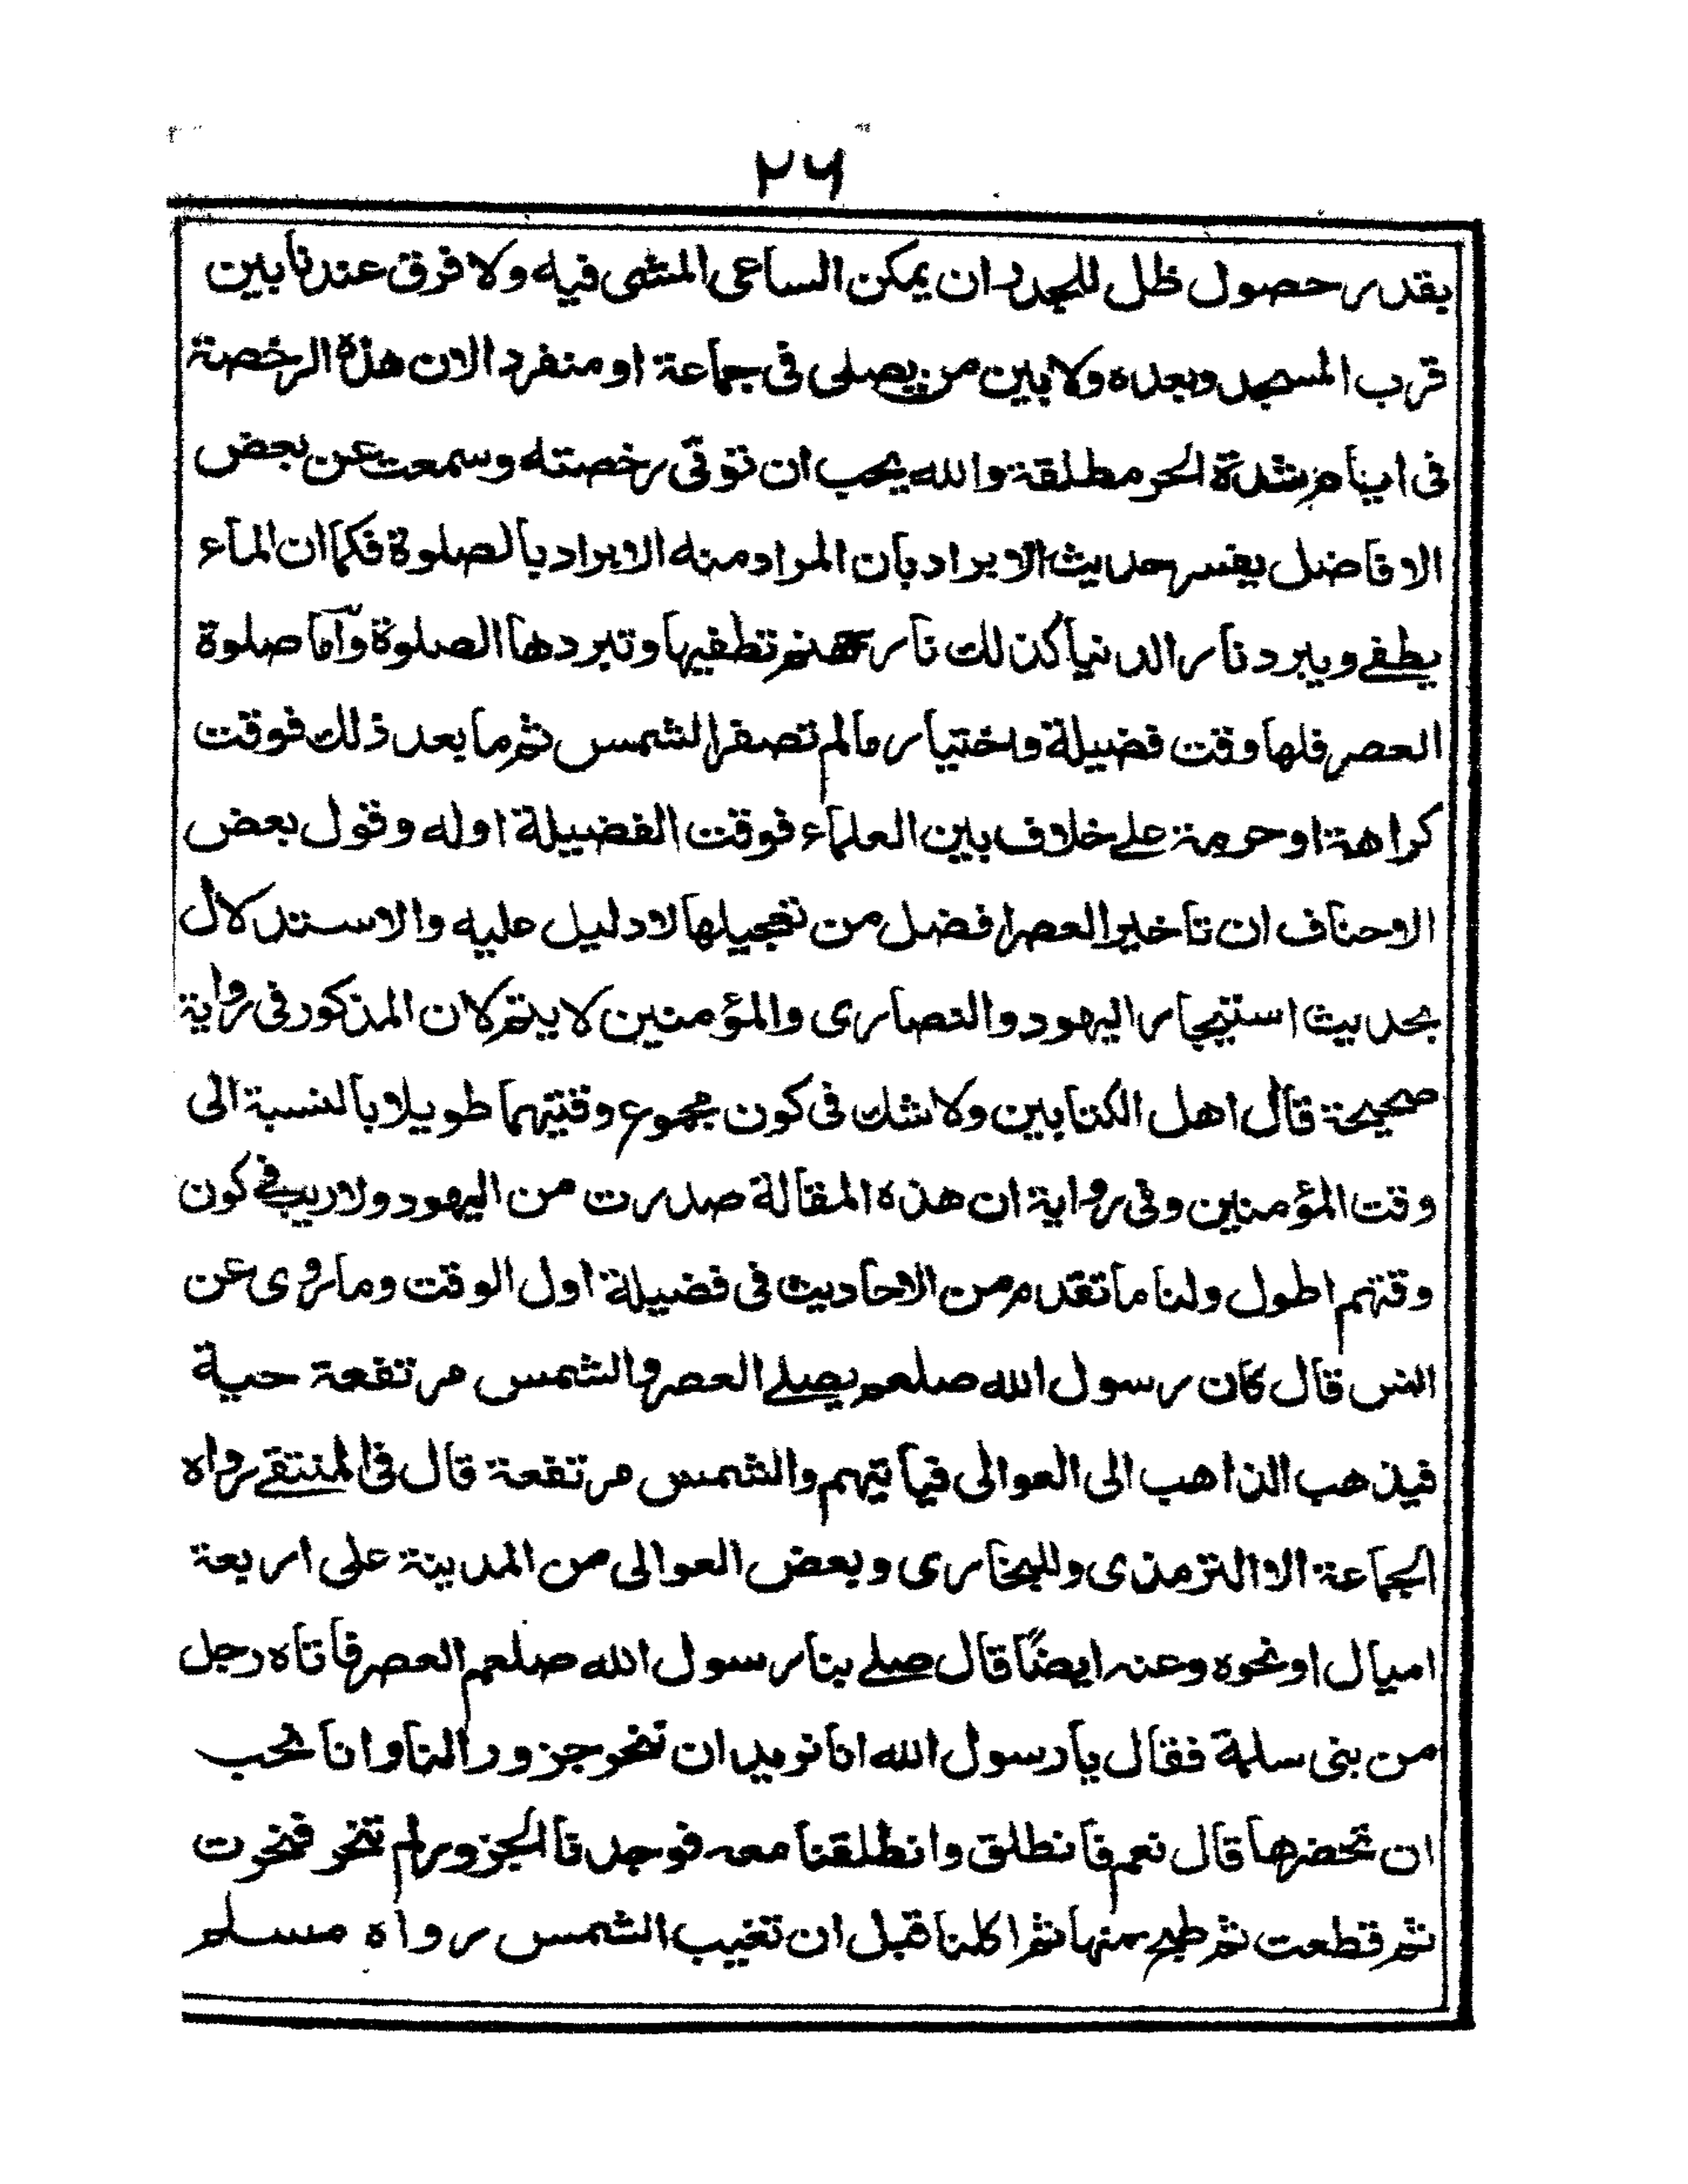 ٢٦
بقدر حصول ظل للجدران يمكن الساعى المشى فيه ولا فرق عندنا بين
قرب المسجد وبعده ولا بين من يصلى فى جماعة او منفرد الان هذه الرخصة
فى ايام شدة الحر مطلقة والله يحب ان توتى رخصته وسمعت عن بعض
الافاضل يفسر حديث الابراد بان المراد منه الابراد بالصلوة فكما ان الماء
يطفے ويبرد نار الدنيا كذلك نار جهنم تطفيها وتبردها الصلوة واما صلوة
العصر فلها وقت فضيلة واختيار مالم تصفر الشمس ثم ما بعد ذلك فوقت
كراهة او حرمة علے خلاف بين العلماء فوقت الفضيلة اوله وقول بعض
الاحناف ان تاخير العصر افضل من تعجيلها لا دليل عليه والاستدلال
بحديث استيجار اليهود والنصارى والمؤمنين لا يتم لان المذكور فى رواية
صحيحة قال اهل الكتابين ولا شك فى كون مجموع وقتيهما طويلا بالنسبة الى
وقت المؤمنين وفى رواية ان هذه المقالة صدرت من اليهود ولا ريب فے كون
وقتهم اطول ولنا ما تقدم من الاحاديث فى فضيلة اول الوقت وما روى عن
انس قال كان رسول الله صلعم يصلے العصر والشمس مرتفعة حية
فيذهب الذاهب الى العوالى فيأتيهم والشمس مرتفعة قال فى المنتقے رواه
الجماعة الا الترمذى وللبخارى وبعض العوالى من المدينة على اربعة
اميال او نحوه وعنه ايضًا قال صلے بنا رسول الله صلعم العصر فاتاه رجل
من بنى سلمة فقال يا رسول الله انا نريد ان ننحر جزورا لنا وانا نحب
ان تحضرها قال نعم فانطلق وانطلقنا معه فوجدنا الجزور لم تنحر فنحرت
ثم قطعت ثم طبخ منها ثم اكلنا قبل ان تغيب الشمس رواه مسلم